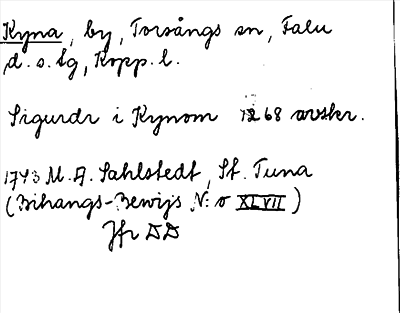 Kyna, by, Torsångs sn, Falu
d. s. lg, Kopp. l.
Sigurdr i Kynom 1268 avskr.
1743 M. A. Sahlstedt, St. Tuna
(Bihangs-Bewijs N:o XLVII)
Jfr DD